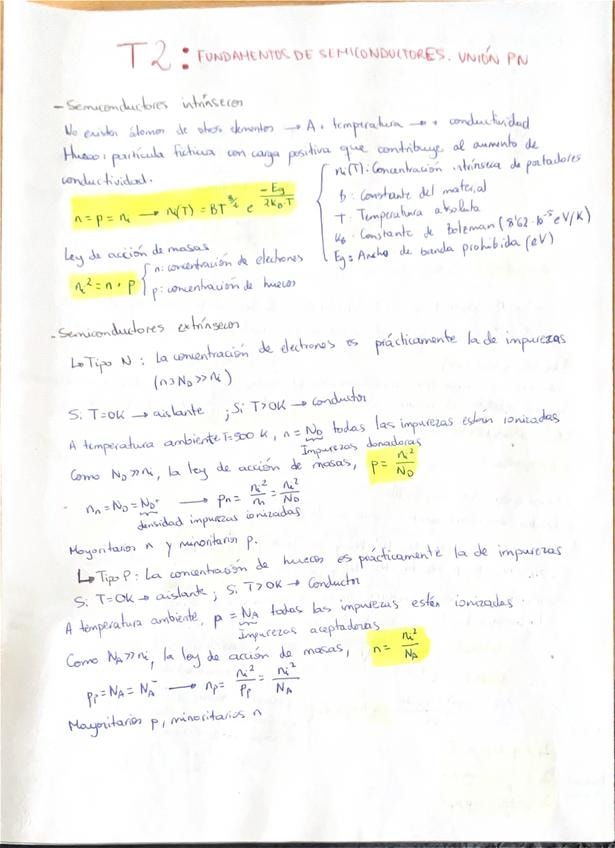 T2: FUNDAMENTOS DE SEMICONDUCTORES. UNIÓN PN
- Semiconductores intrínsecos
No existen átomos de otros elementos → A + temperatura → + conductividad
Hueco: partícula ficticia con carga positiva que contribuye al aumento de
conductividad.
n = p = nᵢ → nᵢ(T) = BT^(3/2) e^(-Eg/(2k_B·T))
nᵢ(T): Concentración intrínseca de portadores
B: Constante del material
T: Temperatura absoluta
k_B: Constante de Bolzman (8'62·10⁻⁵ eV/K)
Eg: Ancho de banda prohibida (eV)
Ley de acción de masas
nᵢ² = n · p
n: concentración de electrones
p: concentración de huecos
- Semiconductores extrínsecos
↳ Tipo N: la concentración de electrones es prácticamente la de impurezas
(n ≈ N_D >> nᵢ)
Si T=0K → aislante ; Si T>0K → conductor
A temperatura ambiente T=300 K, n = N_D todas las impurezas están ionizadas
Impurezas donadoras
Como N_D >> nᵢ, la ley de acción de masas, p = nᵢ²/N_D
nₙ = N_D = N_D⁺ → pₙ = nᵢ²/n = nᵢ²/N_D
densidad impurezas ionizadas
Mayoritarios n y minoritarios p.
↳ Tipo P: La concentración de huecos es prácticamente la de impurezas
Si T=0K → aislante ; Si T>0K → Conductor
A temperatura ambiente, p = N_A todas las impurezas están ionizadas
Impurezas aceptadoras
Como N_A >> nᵢ, la ley de acción de masas, n = nᵢ²/N_A
pₚ = N_A = N_A⁻ → nₚ = nᵢ²/pₚ = nᵢ²/N_A
Mayoritarios p, minoritarios n